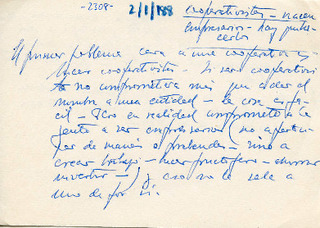 -2308- 2/11/88 cooperativistas - hacen
empresarios - hay que
hacerlo
El primer problema para una cooperativa es
hacer cooperativistas - Si ser cooperativis
ta no comprometiera más que a dar el
nombre a una entidad - la cosa es fá-
cil - Pero en realidad compromete a la
gente a ser empresarios (no a
de manera a pretender - sino a
crear trabajo - hacer fructífero - ahorrar
invertir -) y eso no le sale a
uno de por sí.